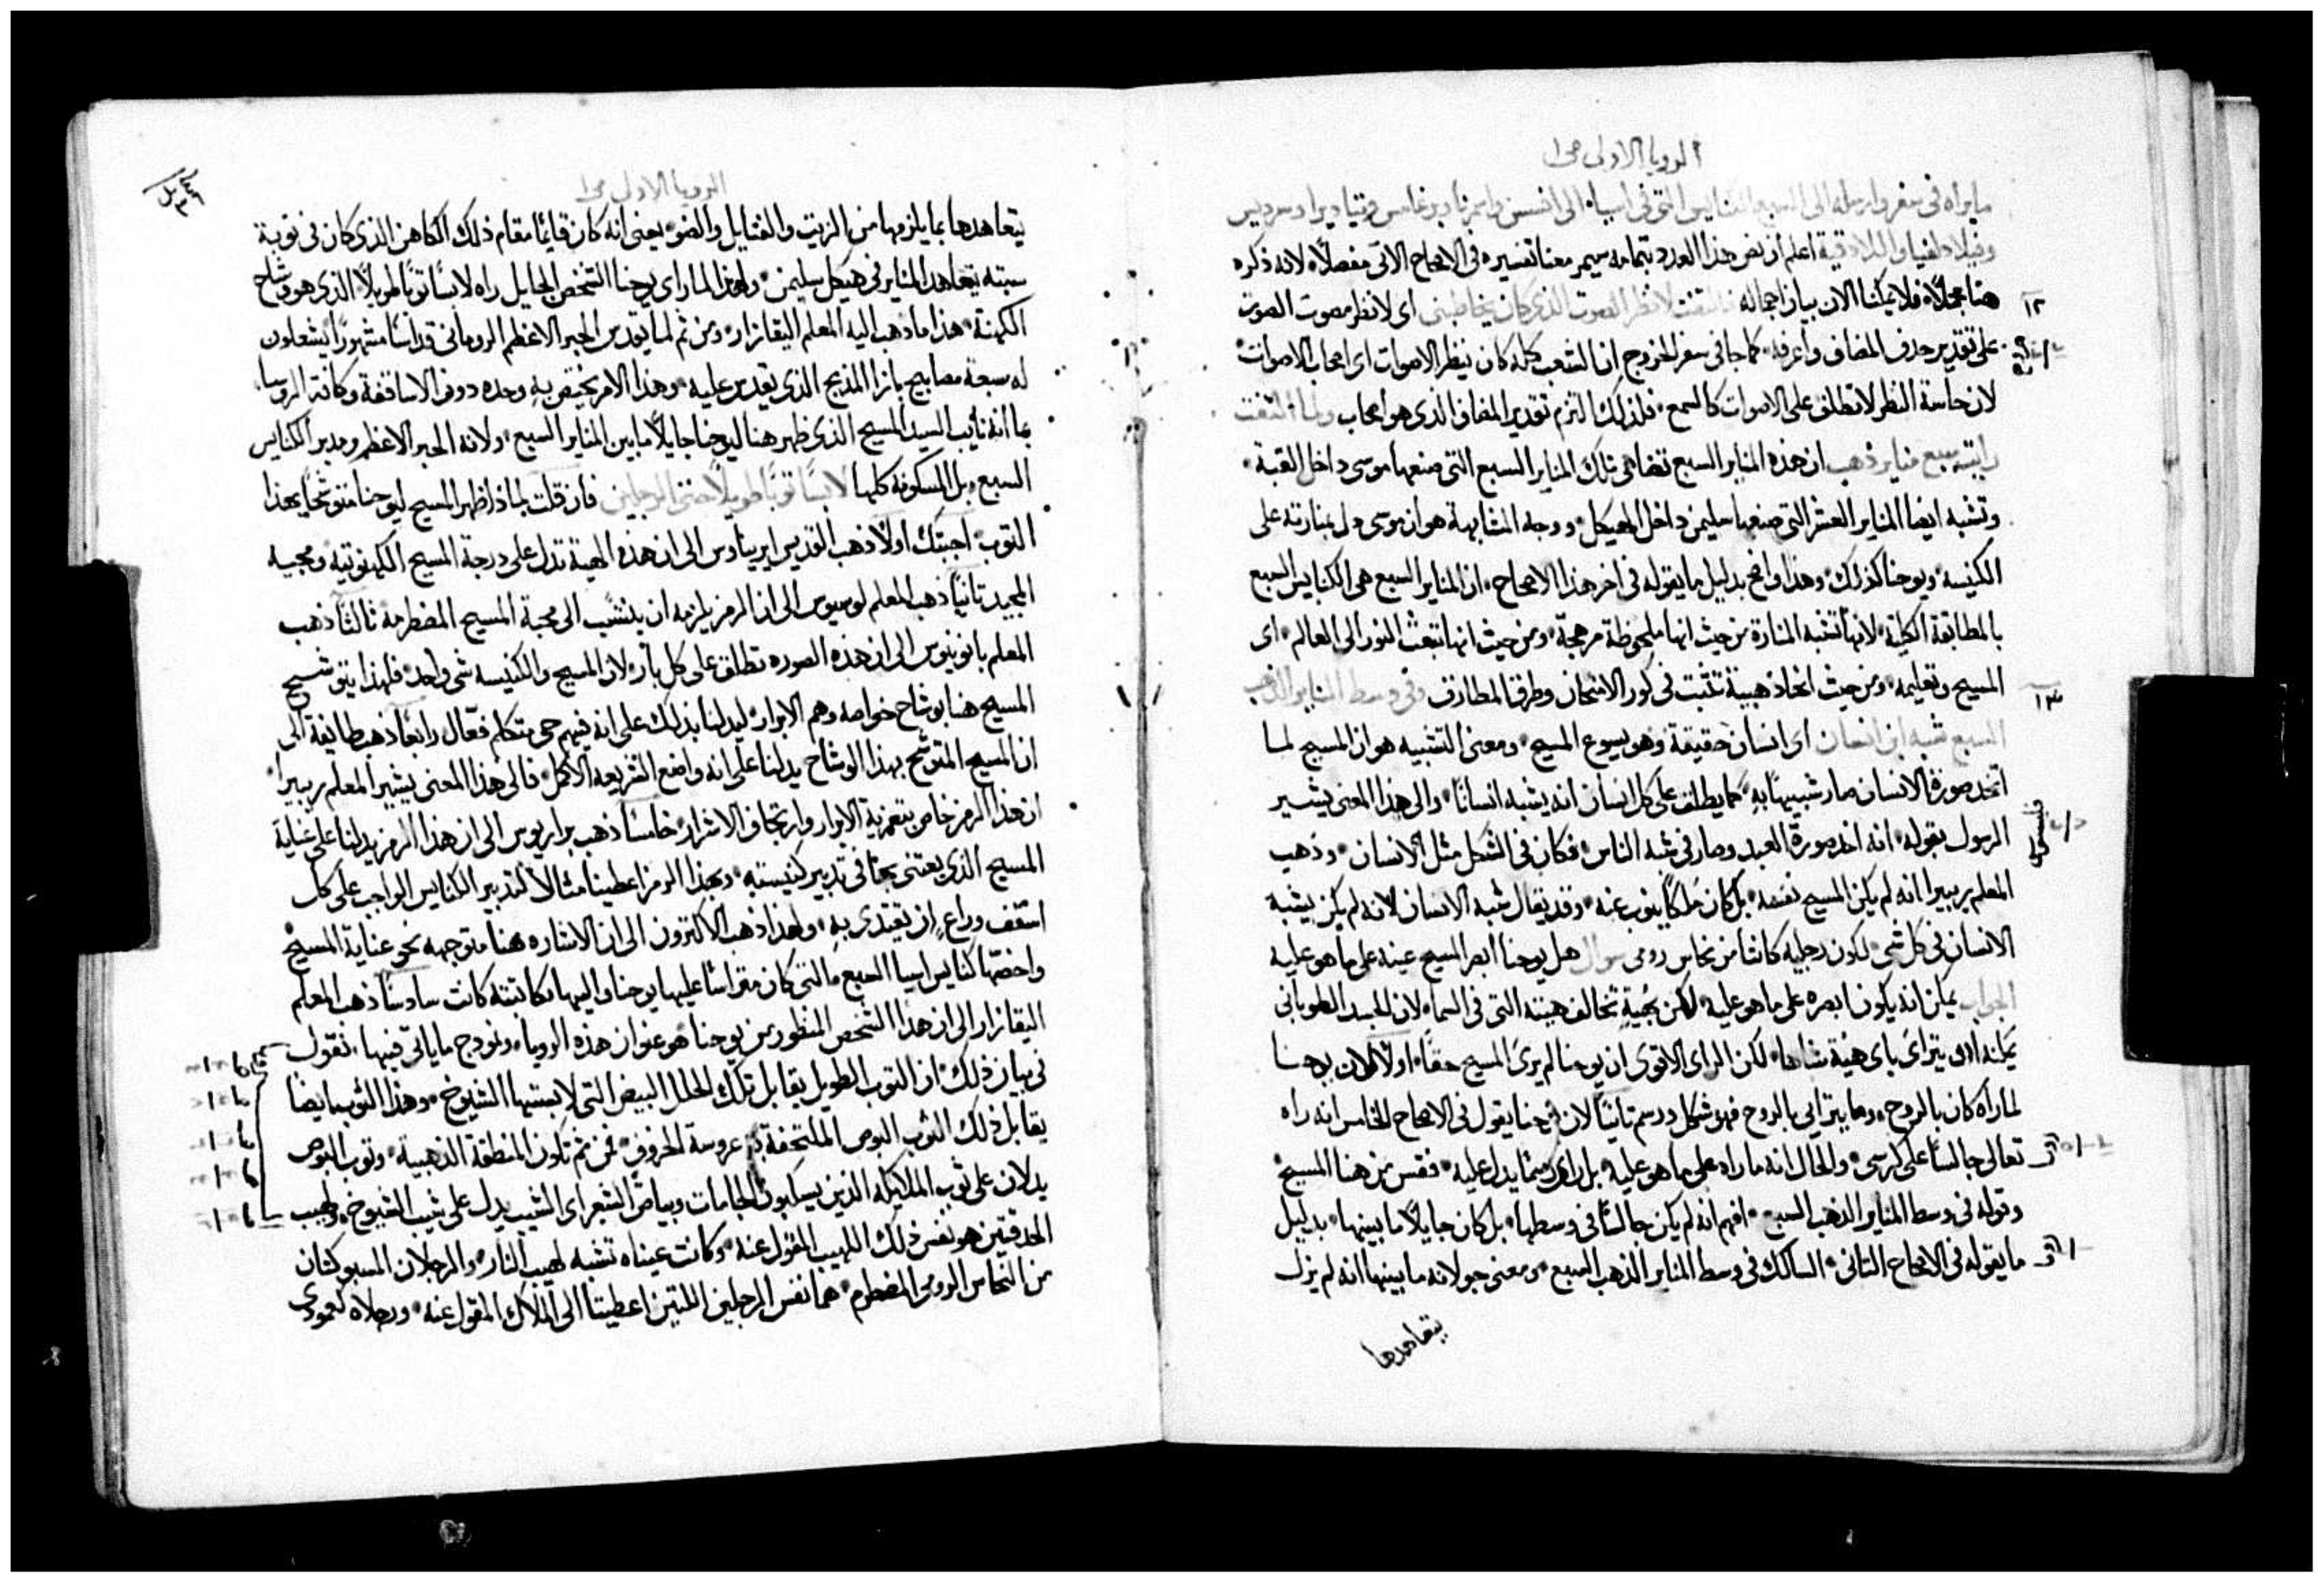 الرويا الاولى صح ا
ما تراه في سفر وارسله الى السبع الكنايس التي في اسيا، الى افسس وازميرنا وبرغامس وتياديرا وسرديس
وفيلادلفيا واللادقية اعلم ان نص هذا العدد بتمامه سيمر معنا تفسيره في الاصحاح الاتي مفصلًا، لانه ذكره
١٢ هنا مجملًا، فلا يمكنا الان بيان اجماله فالتفت لانظر الصوت الذي كان يخاطبني اى لانظر مصوت الصوت
على تقدير حذف المضاف واعرفه، كما جا في سفر الخروج ان الشعب كله كان ينظر الاصوات اى اصحاب الاصوات
لان حاسة النظر لا تطلق على الاصوات كالسمع، فلذلك التزم تقدير المضاف الذي هو اصحاب ولما التفت
رايت سبع مناير ذهب ان هذه المناير السبع تضاهي تلك المناير السبع التي صنعها موسى داخل القبة،
وتشبه ايضا المناير العشر التي صنعها سليمن داخل الهيكل، ووجه المشابهة هو ان موسى دل بمنارته على
الكنيسه، ويوحنا كذلك، وهذا واضح بدليل ما يقوله في اخر هذا الاصحاح، ان المناير السبع هي الكنايس السبع
بالمطابقة الكلية، لانها تشبه المنارة من حيث انها ملحوظة مرهجة، ومن حيث انها تبعث النور الى العالم، اى
١٣ المسيح وتعليمه، ومن حيث انها ذهبية تثبت في كور الامتحان وطرق المطارق وفي وسط المناير الذهب
السبع شبه ابن انسان اى انسان حقيقة وهو يسوع المسيح، ومعنى التشبيه هو ان المسيح لما
اتخذ صورة الانسان صار شبيهًا به، كما يطلق على كل انسان انه يشبه انسانًا، والى هذا المعنى يشير
الرسول بقوله، انه اخذ صورة العبد وصار في شبه الناس، فكان في الشكل مثل الانسان، وذهب
المعلم ريبيرا انه لم يكن المسيح نفسه، بل كان ملكًا ينوب عنه، وقد يقال شبه الانسان لانه لم يكن يشبه
الانسان في كل شي، لكون رجليه كانتا من نحاس رومي سوال هل يوحنا ابصر المسيح عينه على ما هو عليه
الجواب يمكن انه يكون ابصره على ما هو عليه، لكن بهيّةٍ تخالف هيئته التي في السما، لان الجسد الطوباني
يمكنه ان يتراى باى هيئة شاها، لكن الراى الاقوى ان يوحنا لم يرى المسيح حقًا، اولًا لان يوحنا
لما راه كان بالروح، وما يترايى بالروح فهو شكل ورسم ثانيًا لان يوحنا يقول في الاصحاح الخامس انه راه
تعالى جالسًا على كرسي، والحال انه ما راه على ما هو عليه، بل راى رسمًا يدل عليه، فقس من هنا المسيح
وقوله في وسط المناير الذهب السبع، افهم انه لم يكن جالسًا في وسطها، بل كان جايلًا ما بينها، بدليل
ما يقوله في الاصحاح الثاني، السالك في وسط المناير الذهب السبع، ومعنى جولانه ما بينها انه لم يزل
يتعاهدها
الرويا الاولى صح ا
يتعاهدها بما يلزمها من الزيت والفتايل والضو، يعني انه كان قايمًا مقام ذلك الكاهن الذي كان في نوبة
سبته يتعاهد المناير في هيكل سليمن، ولهذا لما راى يوحنا الشخص الجايل راه لابسًا ثوبًا طويلًا، الذي هو وشاح
الكهنة، هذا ما ذهب اليه المعلم اليقازار، ومن ثم لما يقدس الحبر الاعظم الروماني قداسًا مشهورًا يشعلون
له سبعة مصابيح بازا المذبح الذي يقدس عليه، وهذا الامر يختص به وحده دون الاساقفة وكافة الروسا،
بما انه نايب السيد المسيح الذي ظهر هنا ليوحنا جايلًا ما بين المناير السبع، ولانه الحبر الاعظم ومدبر الكنايس
السبع، بل المسكونة كلها لابسًا ثوبًا طويلًا حتى الرجلين فان قلت لماذا ظهر المسيح ليوحنا متوشحًا بهذا
الثوب، اجبتك اولًا ذهب القديس ايريناوس الى ان هذه الهية تدل على درجة المسيح الكهنوتية، ومجيه
المجيد ثانيًا ذهب المعلم لوسيوس الى ان الرمز يلزمه ان ينسب الى محبة المسيح المضطرمة ثالثًا ذهب
المعلم بانونيوس الى ان هذه الصورة تطلق على كل بار، لان المسيح والكنيسه شي واحد، فلهذا يتوشح
المسيح هنا بوشاح خواصه وهم الابرار، ليدلنا بذلك على انه فيهم حي متكلم فعّال رابعًا ذهب طايفة الى
ان المسيح المتوشح بهذا الوشاح يدلنا على انه واضع الشريعه الاكمل، فالى هذا المعنى يشير المعلم ريبيرا،
ان هذا الرمز خاص بتعزية الابرار وارتجاف الاشرار، خامسًا ذهب براريوس الى ان هذا الرمز يدلنا على عناية
المسيح الذي يعتني بها في تدبير كنيسته، وبهذا الرمز اعطينا مثالًا لتدبير الكنايس الواجب على كل
اسقف وراعٍ ان يقتدى به، ولهذا ذهب الاكثرون الى ان الاشاره هنا متوجهه نحو عناية المسيح
واخصّها كنايس اسيا السبع، التي كان متراسًا عليها يوحنا، واليها مكاتبته كانت سادسًا ذهب المعلم
اليقازار الى ان هذا الشخص المنظور من يوحنا هو عنوان هذه الرويا، ونموذج ما ياتي فيها، نقول
في بيان ذلك، ان الثوب الطويل يقابل تلك الحلل البيض التي لابستها الشيوخ، وهذا الثوب ايضا
يقابل ذلك الثوب البوص الملتحفة به عروسة الخروف، فمن ثم تكون المنطقة الذهبية، وثوب البوص
يدلان على ثوب الملايكه الذين يسكبون الجامات وبياض الشعر اى الشيب يدل على شيب الشيوخ، ولهيب
الحدقتين هو نفس ذلك اللهيب المقول عنه، وكانت عيناه تشبه لهيب النار، والرجلان المسبوكتان
من النحاس الرومي المضطرم، هما نفس الرجلين اللتين اعطيتا الى الملاك المقول عنه، ورجلاه كعمودى